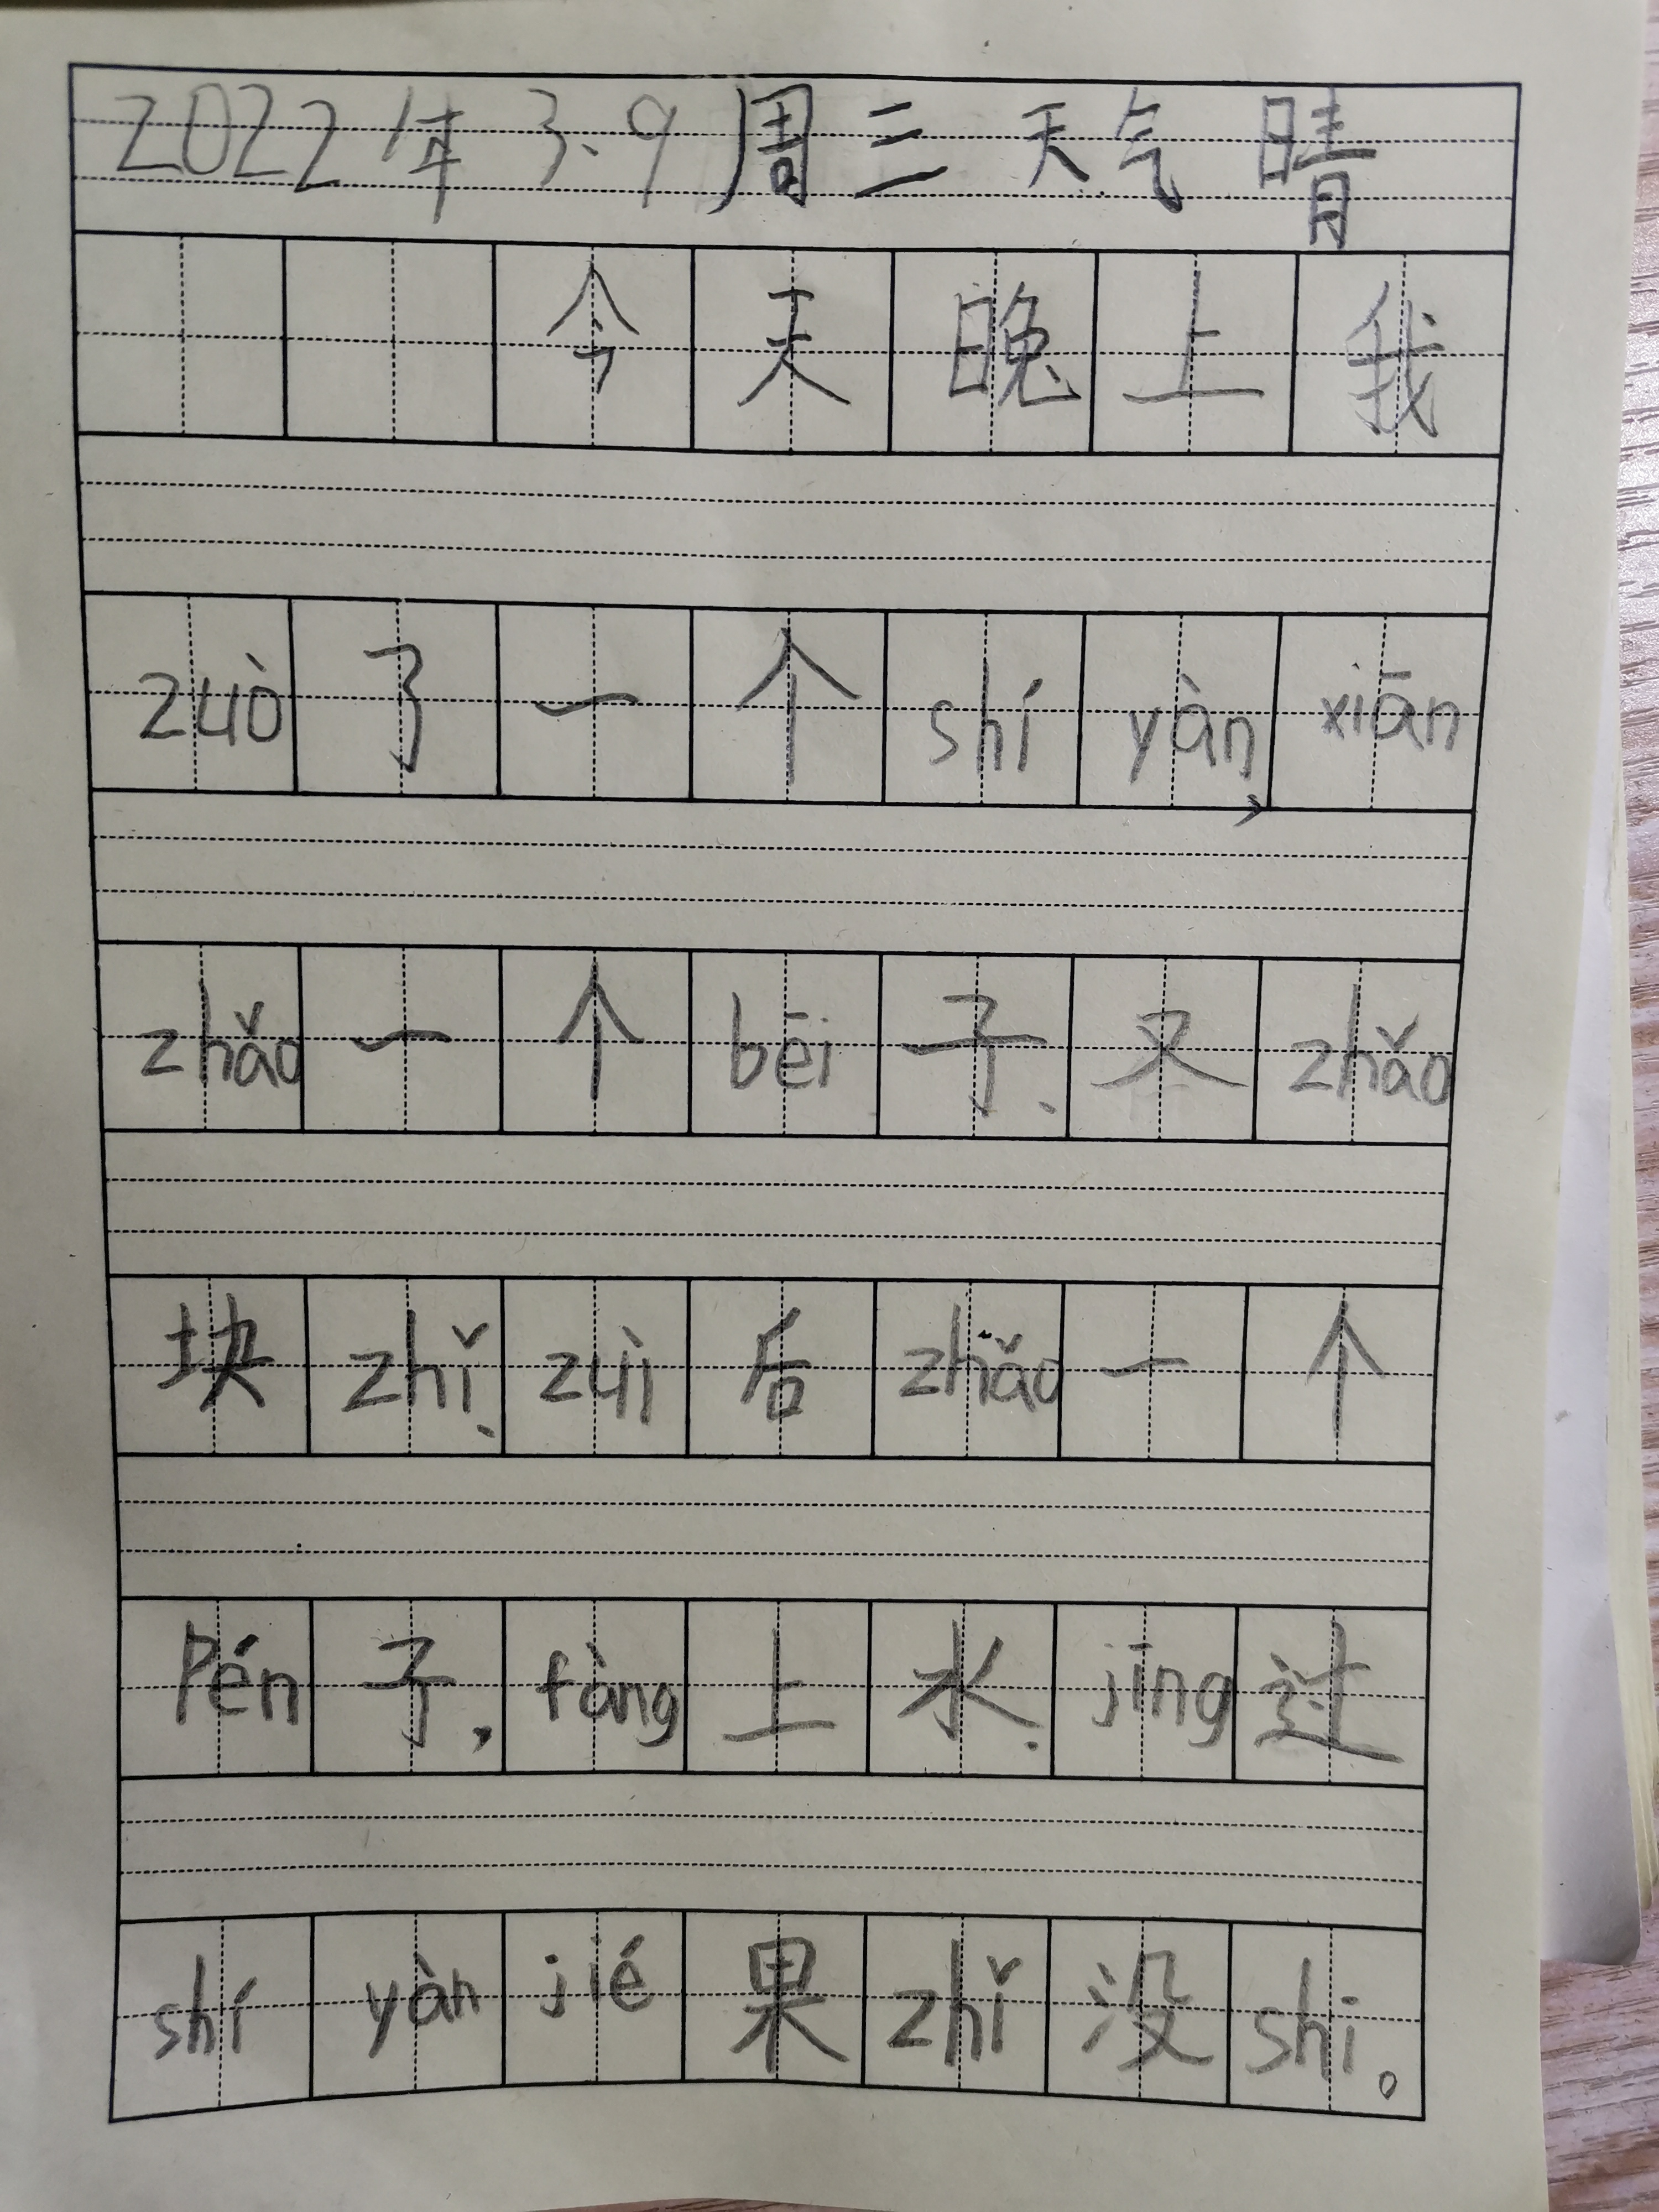 2022年 3.9 周三 天气 晴
今天晚上我
zuò了一个shí yàn,xiān
zhǎo一个bēi子、又zhǎo
块zhǐ、zuì后zhǎo一个
Pén子,fàng上水、jīng过
shí yàn jié果zhǐ没shi。